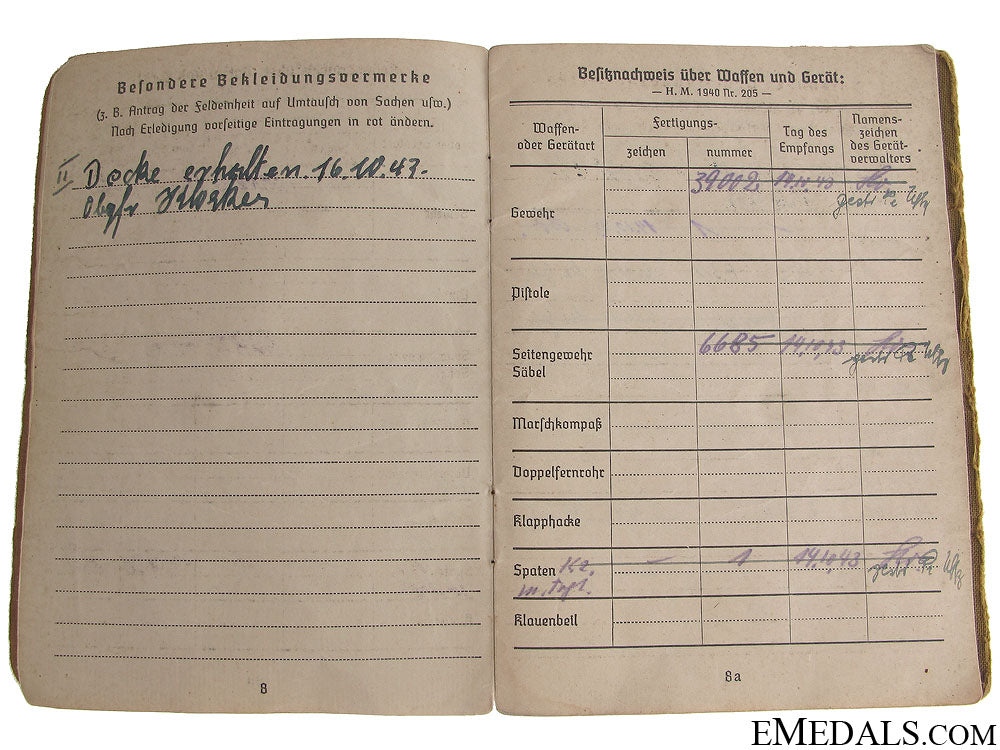 Besondere Bekleidungsvermerke
(z. B. Antrag der Feldeinheit auf Umtausch von Sachen usw.)
Nach Erledigung vorseitige Eintragungen in rot ändern.
II Decke erhalten. 16.10.43.
Obgfr
8
Besitznachweis über Waffen und Gerät:
— H. M. 1940 Nr. 205 —
Waffen- oder Gerätart
Fertigungs-
zeichen
nummer
Tag des Empfangs
Namens-
zeichen
des Gerät-
verwalters
Gewehr 39002. 14.10.43
gestr Uffz
Pistole
Seitengewehr 6685 14.10.43
Säbel gestr Uffz
Marschkompaß
Doppelfernrohr
Klapphacke
Spaten Kz. – 1 14.10.43
m. gestr Uffz
Klauenbeil
8a
EMEDALS.COM